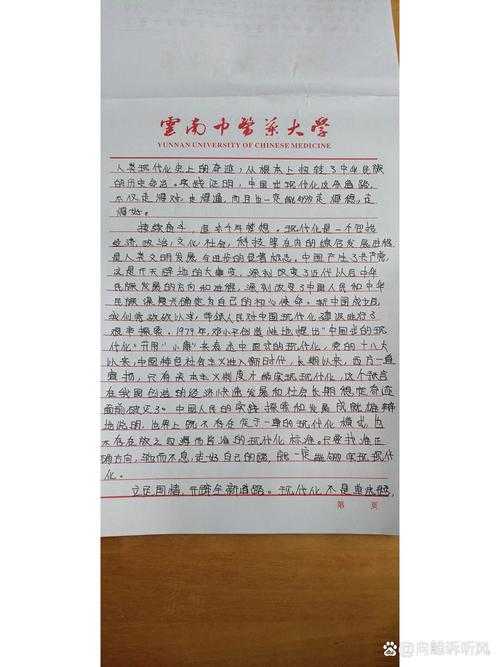 雲南中醫藥大學
YUNNAN UNIVERSITY OF CHINESE MEDICINE
人类现代化史上的奇迹,从根本上扭转了中华民族
的历史命运。实践证明,中国式现代化这条道路,
不仅走得对、走得通,而且也一定能够走得稳、走
得好。
接续奋斗,追求千年梦想。现代化是一个包括
经济、政治、文化、社会、科技等在内的综合发展进程
是人类文明发展与进步的显著标志。中国产生了共产党,
这是开天辟地的大事变,深刻改变了近代以后中华
民族发展的方向和进程,深刻改变了中国人民和中华
民族
复兴确定为自己的初心使命。新中国成立后,
我们党
带领人民对中国现代化建设进行了
艰辛探索。1979年,邓小平创造性地提出“中国式的现代
化”,并用“小康”来表述中国式的现代化。党的十八大
以来,中国特色社会主义进入新时代,长期以来,西方一直
宣扬,只有资本主义制度才能实现现代化,这个预言
在我国创造的经济快速发展和社会长期稳定奇迹
面前破灭了。中国人民的实践探索和发展成就雄辩
地说明,世界上既不存在定于一尊的现代化模式,也
不存在放之四海而皆准的现代化标准。只要找准正
确方向,驰而不息,走好自己的路,就一定能够实现现代
化。
立足国情,开辟全新道路。现代化不是单选题,
第 页
Bai 百度 @向
诉听风